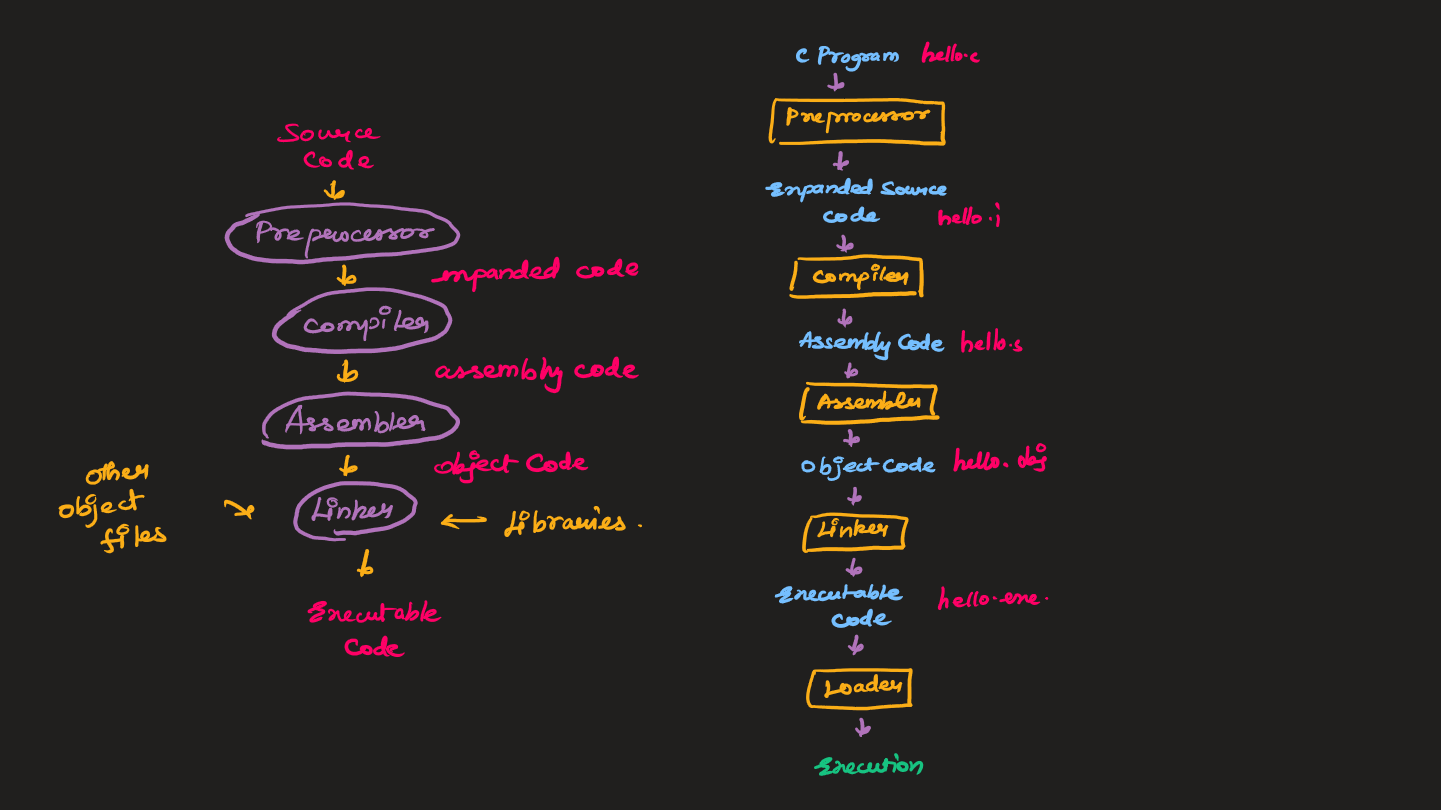 Source
Code
Preprocessor
expanded code
Compiler
assembly code
Assembler
object Code
other
object
files
Linker
Libraries.
Executable
Code
C Program hello.c
Preprocessor
Expanded Source
code hello.i
Compiler
Assembly Code hello.s
Assembler
Object Code hello.obj
Linker
Executable
Code hello.exe.
Loader
Execution